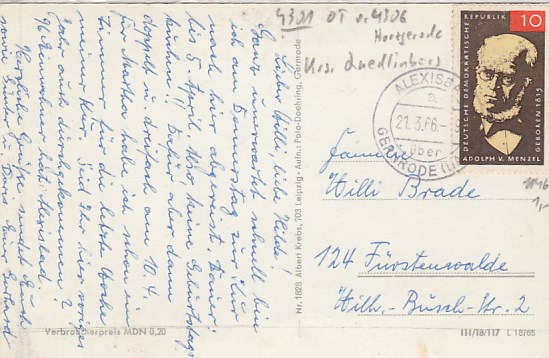 4301 OT v. 4306
Harzgerode
Krs. Quedlinburg
DEUTSCHE DEMOKRATISCHE
REPUBLIK
10
GEBOREN 1815
ADOLPH V. MENZEL
ALEXISBAD
21.3.66.
über
GERNRODE
Liebe Willi u. Hilde!
Ganz unerwartet schnell bin
ich am Donnerstag zur Kur
nach hier abgereist. Dauer:
bis 5. April. Also keine Geburtstags-
feier! Dafür aber dann
doppelt u. dreifach am 10.4.
für Martha habe ich schon ein
Zimmer für die letzte Woche
meiner Kur. Seid Ihr hier voriges
Jahr auch durchgekommen?
Herzliche Grüße sendet Euch
sowie Kinder
Nr. 1828 Albert Krebs, 703 Leipzig - Aufn.: Foto-Doehring, Gernrode
Familie
Willi Brade
124 Fürstenwalde
Wilh.-Busch-Str. 2
Verbraucherpreis MDN 0,20
III/18/117 L 18/65